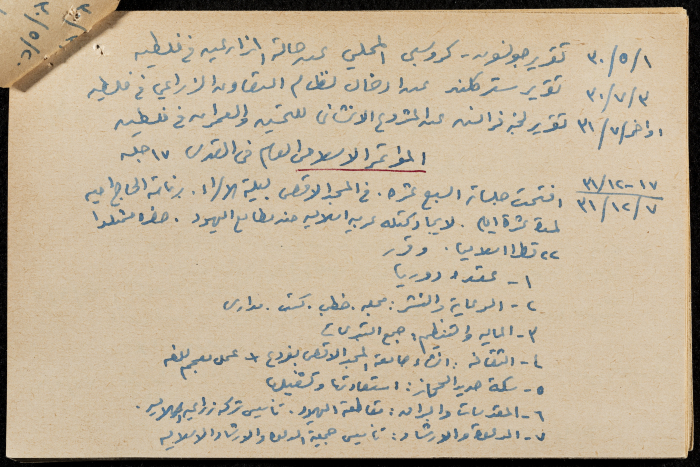 ٣٠/٥/١ تقرير جونسون - كروسبي المحلي عن حالة الزراعة في فلسطين
٣٠/٧/٣ تقرير ستركلند عن ادخال نظام التعاون الزراعي في فلسطين
اواخر/٧/٣١ تقرير لجنة فرنش عن المشروع الانشائي للتنمية والعمران في فلسطين
المؤتمر الاسلامي العام في القدس ١٧ جلسة
١٧-٣١/١٢ افتتحت جلساته السبع عشرة. في المسجد الاقصى ليلة الاسراء. برئاسة الحاج امين
٣١/١٢/٧ لمدة عشرة ايام. لايجاد كتلة عربية اسلامية ضد مطامع اليهود. حضره ممثلو
٢٢ قطرا اسلاميا. وقرر
١- عقده دوريا
٢- الدعاية والنشر: مجلة. خطب. كتب. مدارس
٣- المالية والتنظيم: جمع التبرعات
٤- الثقافة: انشاء جامعة المسجد الاقصى + عمل معجم للغة
٥- سكة حديد الحجاز: استعادتها وتشغيلها
٦- المقدسات والبراق: مقاطعة اليهود. تأسيس شركة زراعية اسلامية.
٧- الدعوة والارشاد: تأسيس جمعية الدعوة والارشاد الاسلامية